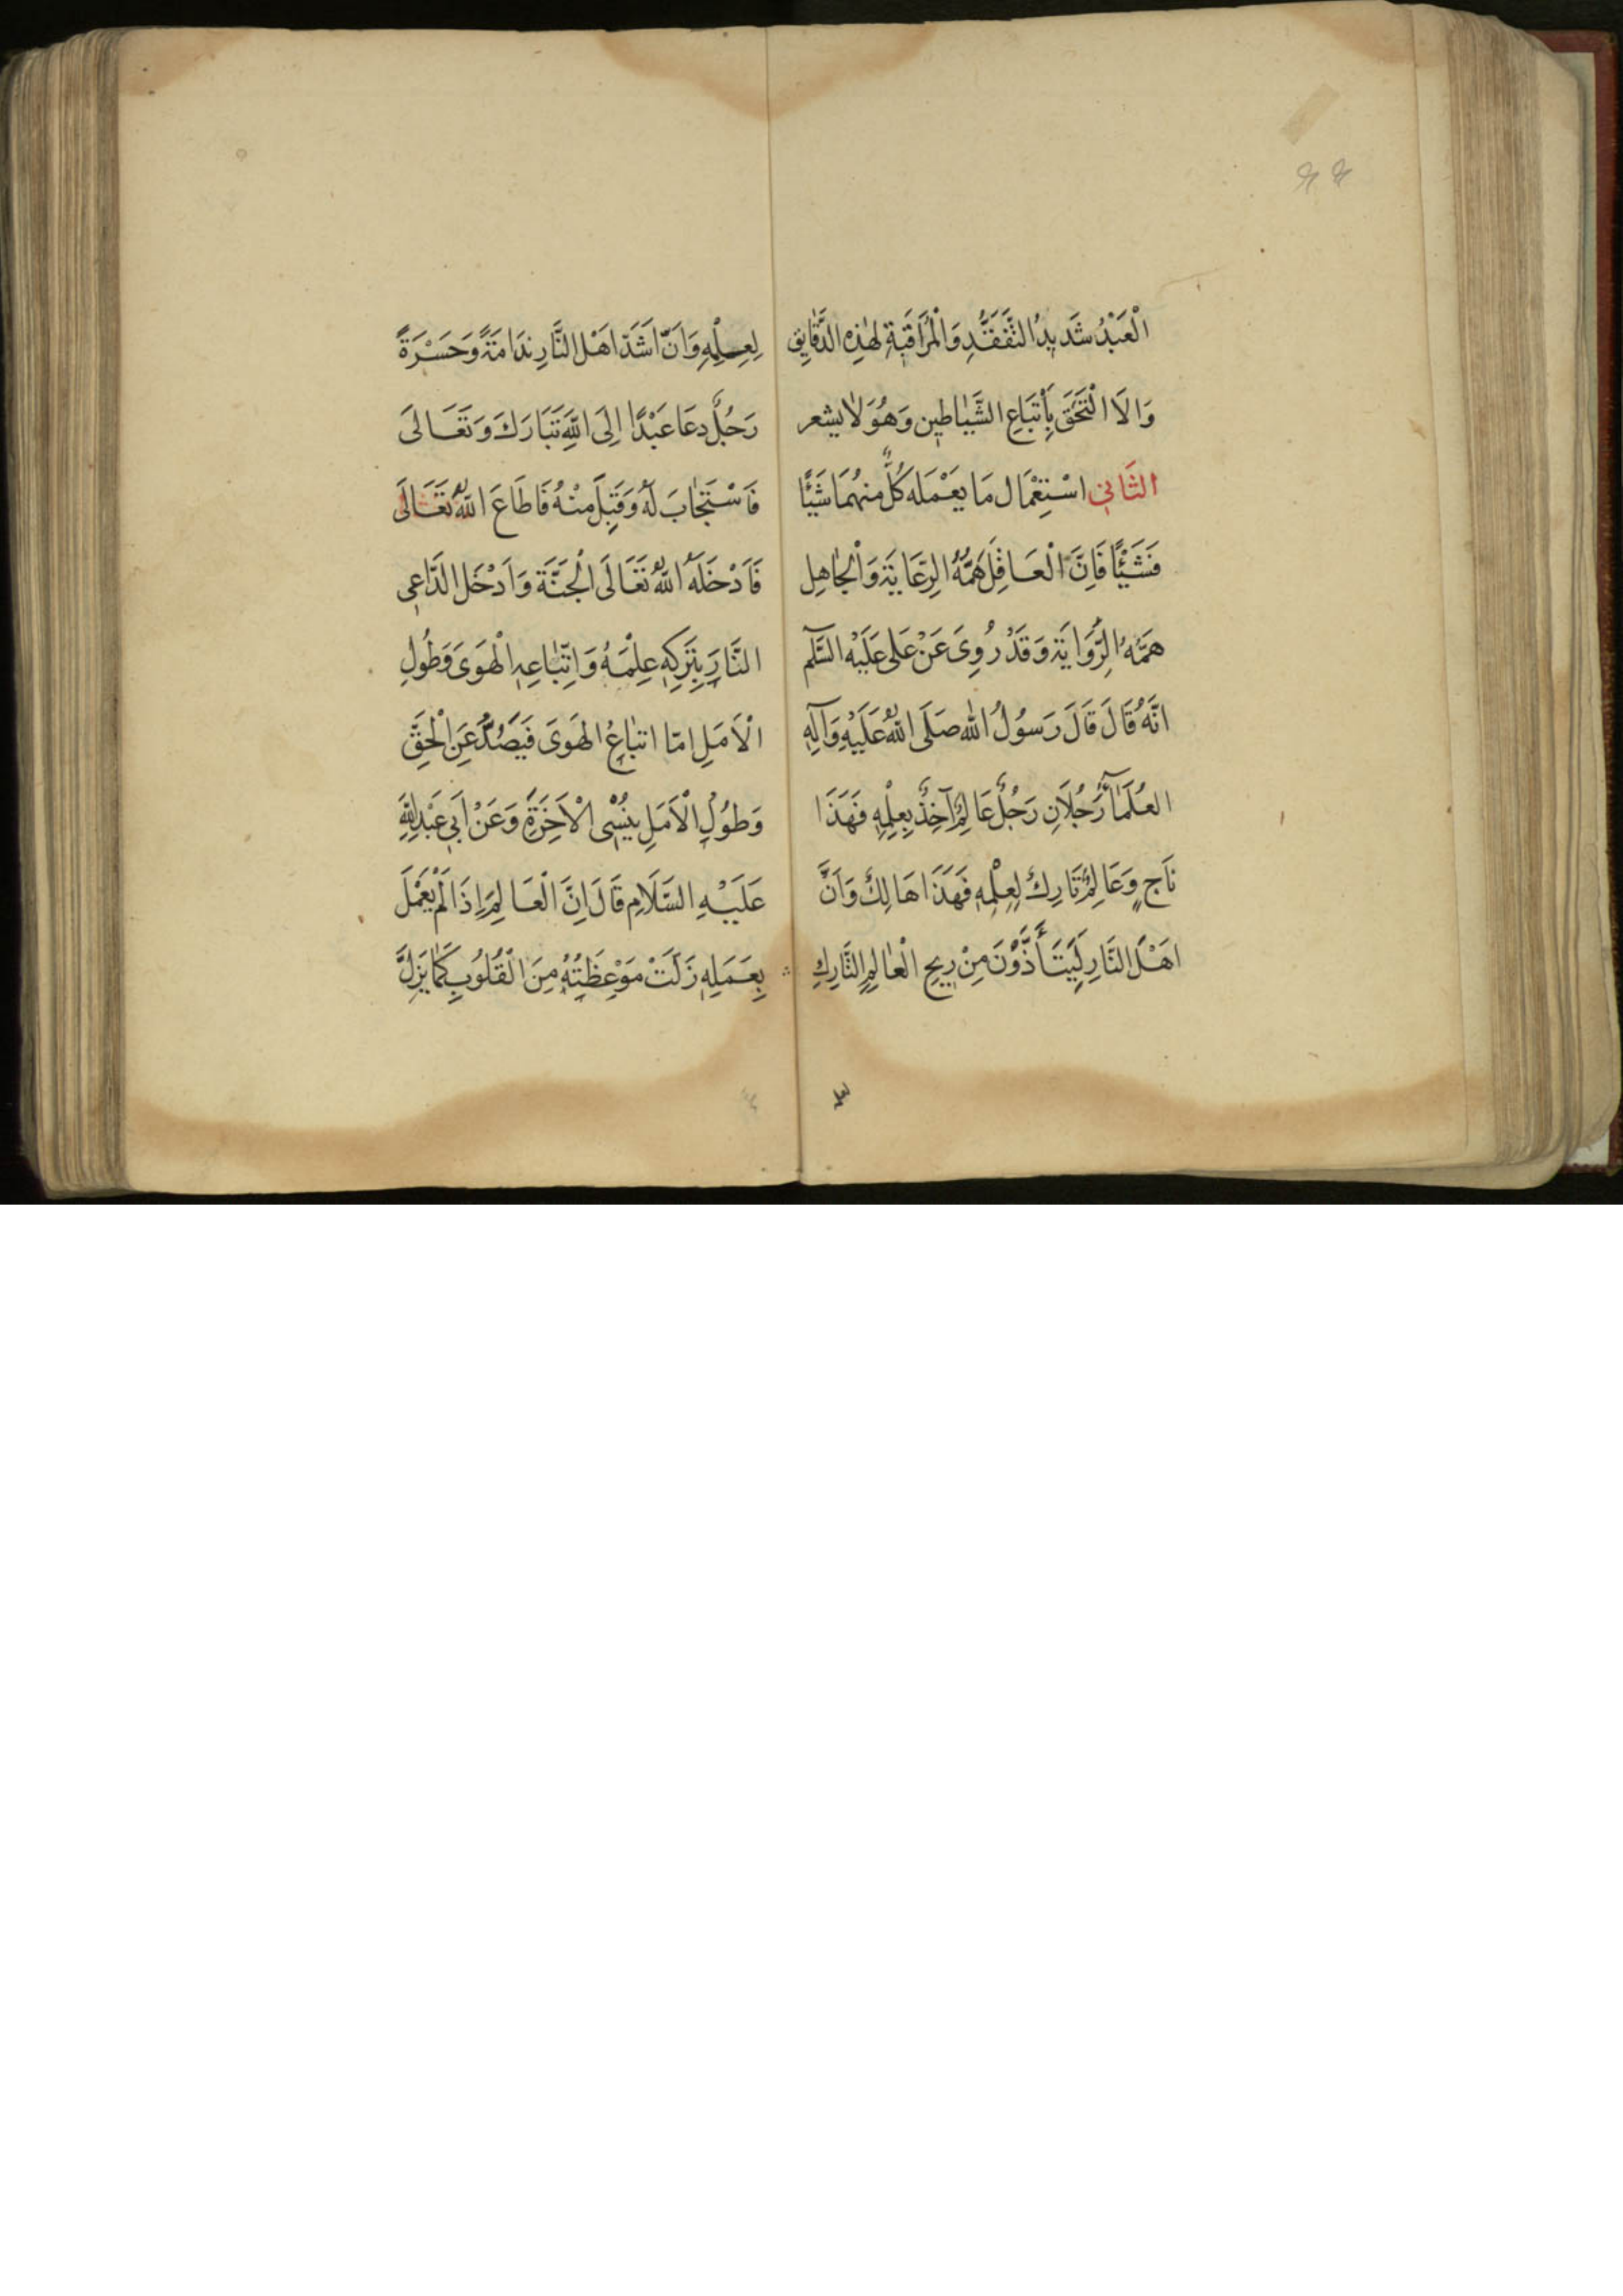 الْعَبْدُ شَدِيدُ التَّفَقُّدِ وَالْمُرَاقَبَةِ لِهٰذِهِ الدَّقَايِقِ
وَالَا الْتَحَقَ بِأَتْبَاعِ الشَّيَاطِينِ وَهُوَ لَا يشعر
الثَّانِي اسْتِعْمَال مَا يَعْمَلهُ كُلٌّ مِنْهُمَا شَيْئًا
فَشَيْئًا فَاِنَّ الْعَاقِلَ هَمُّهُ الرِّعَايَة وَالْجَاهِل
هَمَّهُ الرِّوَايَة وَقَدْ رُوِىَ عَنْ عَلى عَلَيْهِ السَّلَم
انَّهُ قَالَ قَالَ رَسُولُ اللّٰه صَلَى اللّٰهُ عَلَيْهِ وَآلِهِ
العُلَمَآءُ رَجُلَانِ رَجُلٌ عَالِمٌ آخِذٌ بِعِلْمِهِ فَهَذَا
نَاجٍ وَعَالِمٌ تَارِكٌ لِعِلْمِهِ فَهَذَا هَالِكٌ وَاَنَّ
اهَْلَ النَّارِ لَيَتَأَذَّوْنَ مِنْ رِيحِ الْعٰالِمِ التَّارِكِ
لِعِلْمِهِ وَاَنّ اَشَدّ اَهْل النَّارِ نِدَامَةً وَحَسْرَةً
رَجُلٌ دعَا عَبْدًا اِلَى اللّٰهِ تَبَارَكَ وَتَعَالَى
فَاسْتَجٰابَ لَهُ وَقَبِلَ مِنْهُ فَاطَاعَ اللّٰهُ تَعَالَى
فَاَدْخَلَهُ اللّٰهُ تَعَالَى الْجَنَّة وَاَدْخَلَ الدَّاعِى
النَّارَ بِتَرْكِهِ عِلْمَهُ وَاتِّبَاعِهِ الْهَوَى وَطُولِ
الْاَمَلِ امّا اتبٰاعُ الهَوَى فَيَصُدُّ عَنِ الْحَقِّ
وَطُولِ الْاَمَلِ يُنْسِى الْاَخِرَةِ وَعَنْ اَبِي عَبْدِ اللّٰهِ
عَلَيْهِ السَّلَامِ قَالَ اِنَّ الْعَالِمَ اِذَا لَمْ يَعْمَلَ
بِعَمَلِهِ زَلَتْ مَوْعِظَتِهُ مِنَ الْقُلُوبِ كَمَا يَزِلُّ